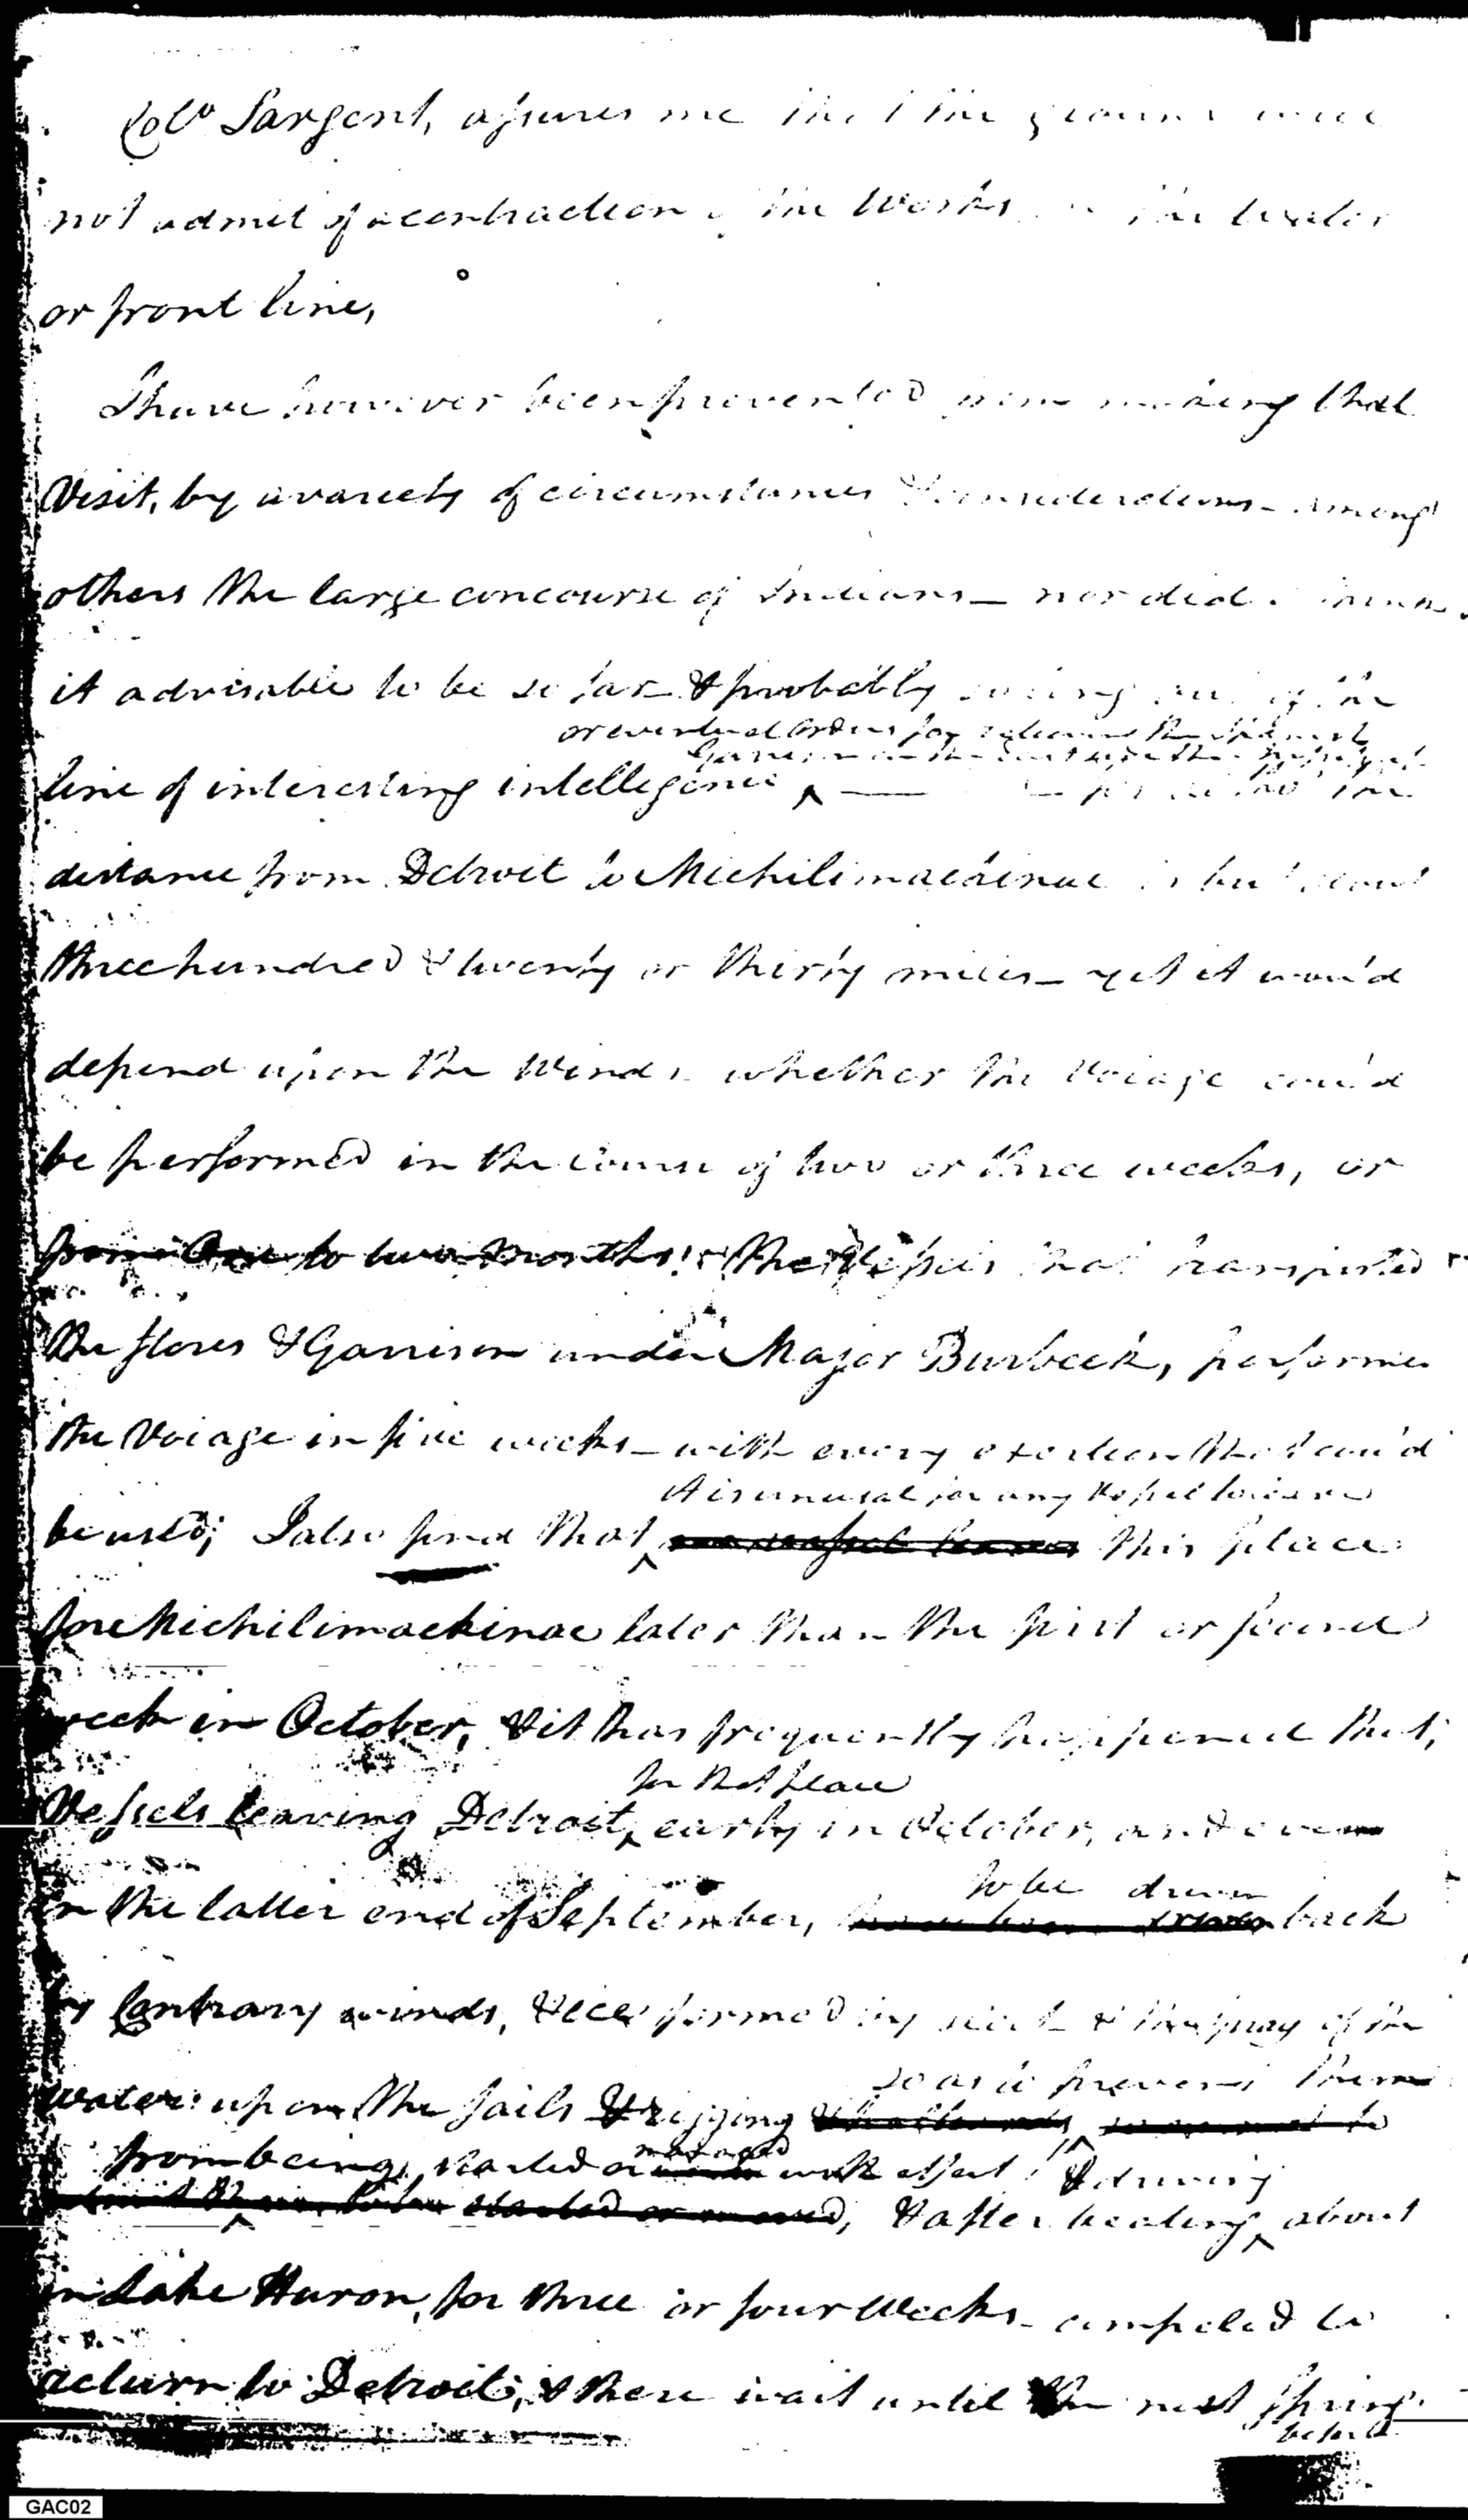 Colo Sargent, assures me that the ground will
not admit of a contraction of the Works in the
or front line,
I have however been prevented from making that
Visit, by a variety of circumstances & considerations – among
others the large concourse of Indians – nor did I think
it advisable to be so far & probably so long out of the
or eventual Orders for relieving the
line of interesting intelligence — for altho' the
distance from Detroit to Michilimackinac is but about
three hundred & twenty or thirty miles – yet it wou'd
depend upon the Winds whether the Voiage cou'd
be performed in the course of two or three weeks, or
from One to two months! the Vessels that transported
the stores & Garrison under Major Burbeck, performed
the Voiage in five weeks – with every exertion that cou'd
it is unusual for any Vessel to leave
be used; I also find that this place
for Michilimackinac later than the first or second
week in October, & it has frequently happened that,
for that place
Vessels leaving Detroit, early in October, and even
to be driven
in the latter end of September, back
by Contrary winds, & ice formed by sleet & the spray of the
so as to prevent them
water upon the sails & rigging
from being started or managed with effect! & driving
started or moved, & after beating about
in Lake Huron, for three or four Weeks – compeled to
return to Detroit, & there wait until the next spring.
before
GAC02